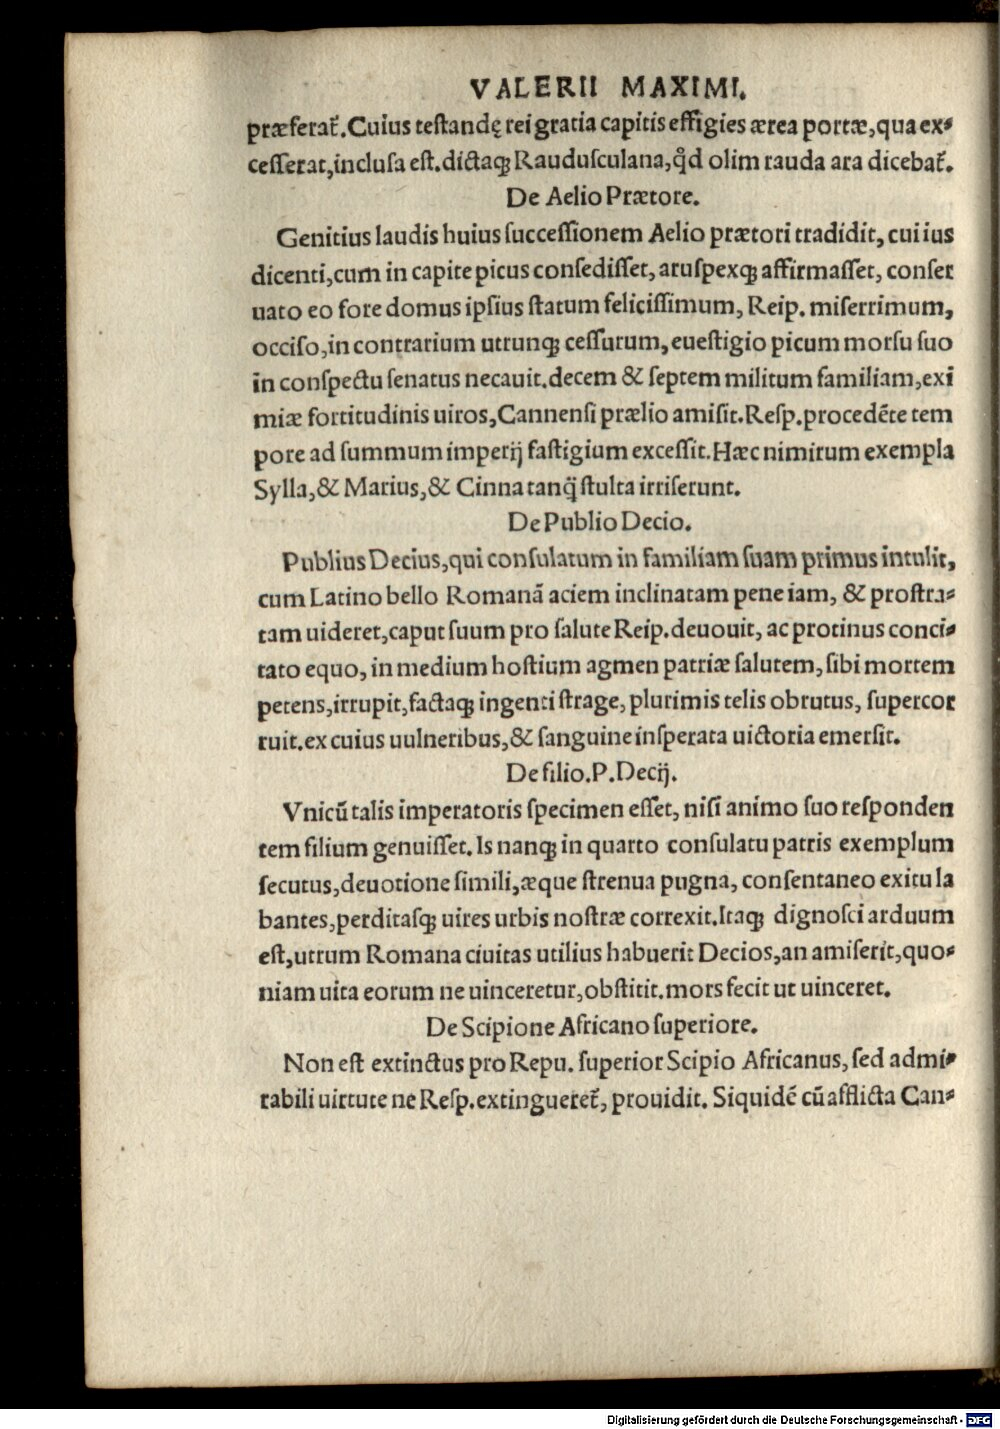 VALERII MAXIMI.
præferat᷑. Cuius testandę rei gratia capitis effigies ærea portæ, qua ex-
cesserat, inclusa est. dictaqꝫ Raudusculana, qd̓ olim rauda ara dicebat᷑.
De Aelio Prætore.
Genitius laudis huius successionem Aelio prætori tradidit, cui ius
dicenti, cum in capite picus consedisset, aruspexqꝫ affirmasset, conser
uato eo fore domus ipsius statum felicissimum, Reip. miserrimum,
occiso, in contrarium utrunqꝫ cessurum, euestigio picum morsu suo
in conspectu senatus necauit. decem & septem militum familiam, exi
miæ fortitudinis uiros, Cannensi prælio amisit. Resp. procedēte tem
pore ad summum imperij fastigium excessit. Hæc nimirum exempla
Sylla, & Marius, & Cinna tanq̃ stulta irriserunt.
De Publio Decio.
Publius Decius, qui consulatum in familiam suam primus intulit,
cum Latino bello Romanā aciem inclinatam pene iam, & prostra-
tam uideret, caput suum pro salute Reip. deuouit, ac protinus conci-
tato equo, in medium hostium agmen patriæ salutem, sibi mortem
petens, irrupit, factaqꝫ ingenti strage, plurimis telis obrutus, supercor
ruit. ex cuius uulneribus, & sanguine insperata uictoria emersit.
De filio. P. Decij.
Vnicū talis imperatoris specimen esset, nisi animo suo responden
tem filium genuisset. Is nanqꝫ in quarto consulatu patris exemplum
secutus, deuotione simili, æque strenua pugna, consentaneo exitu la
bantes, perditasqꝫ uires urbis nostræ correxit. Itaqꝫ dignosci arduum
est, utrum Romana ciuitas utilius habuerit Decios, an amiserit, quo-
niam uita eorum ne uinceretur, obstitit. mors fecit ut uinceret.
De Scipione Africano superiore.
Non est extinctus pro Repu. superior Scipio Africanus, sed admi-
rabili uirtute ne Resp. extingueret᷑, prouidit. Siquidē cū afflicta Can-
Digitalisierung gefördert durch die Deutsche Forschungsgemeinschaft - DFG